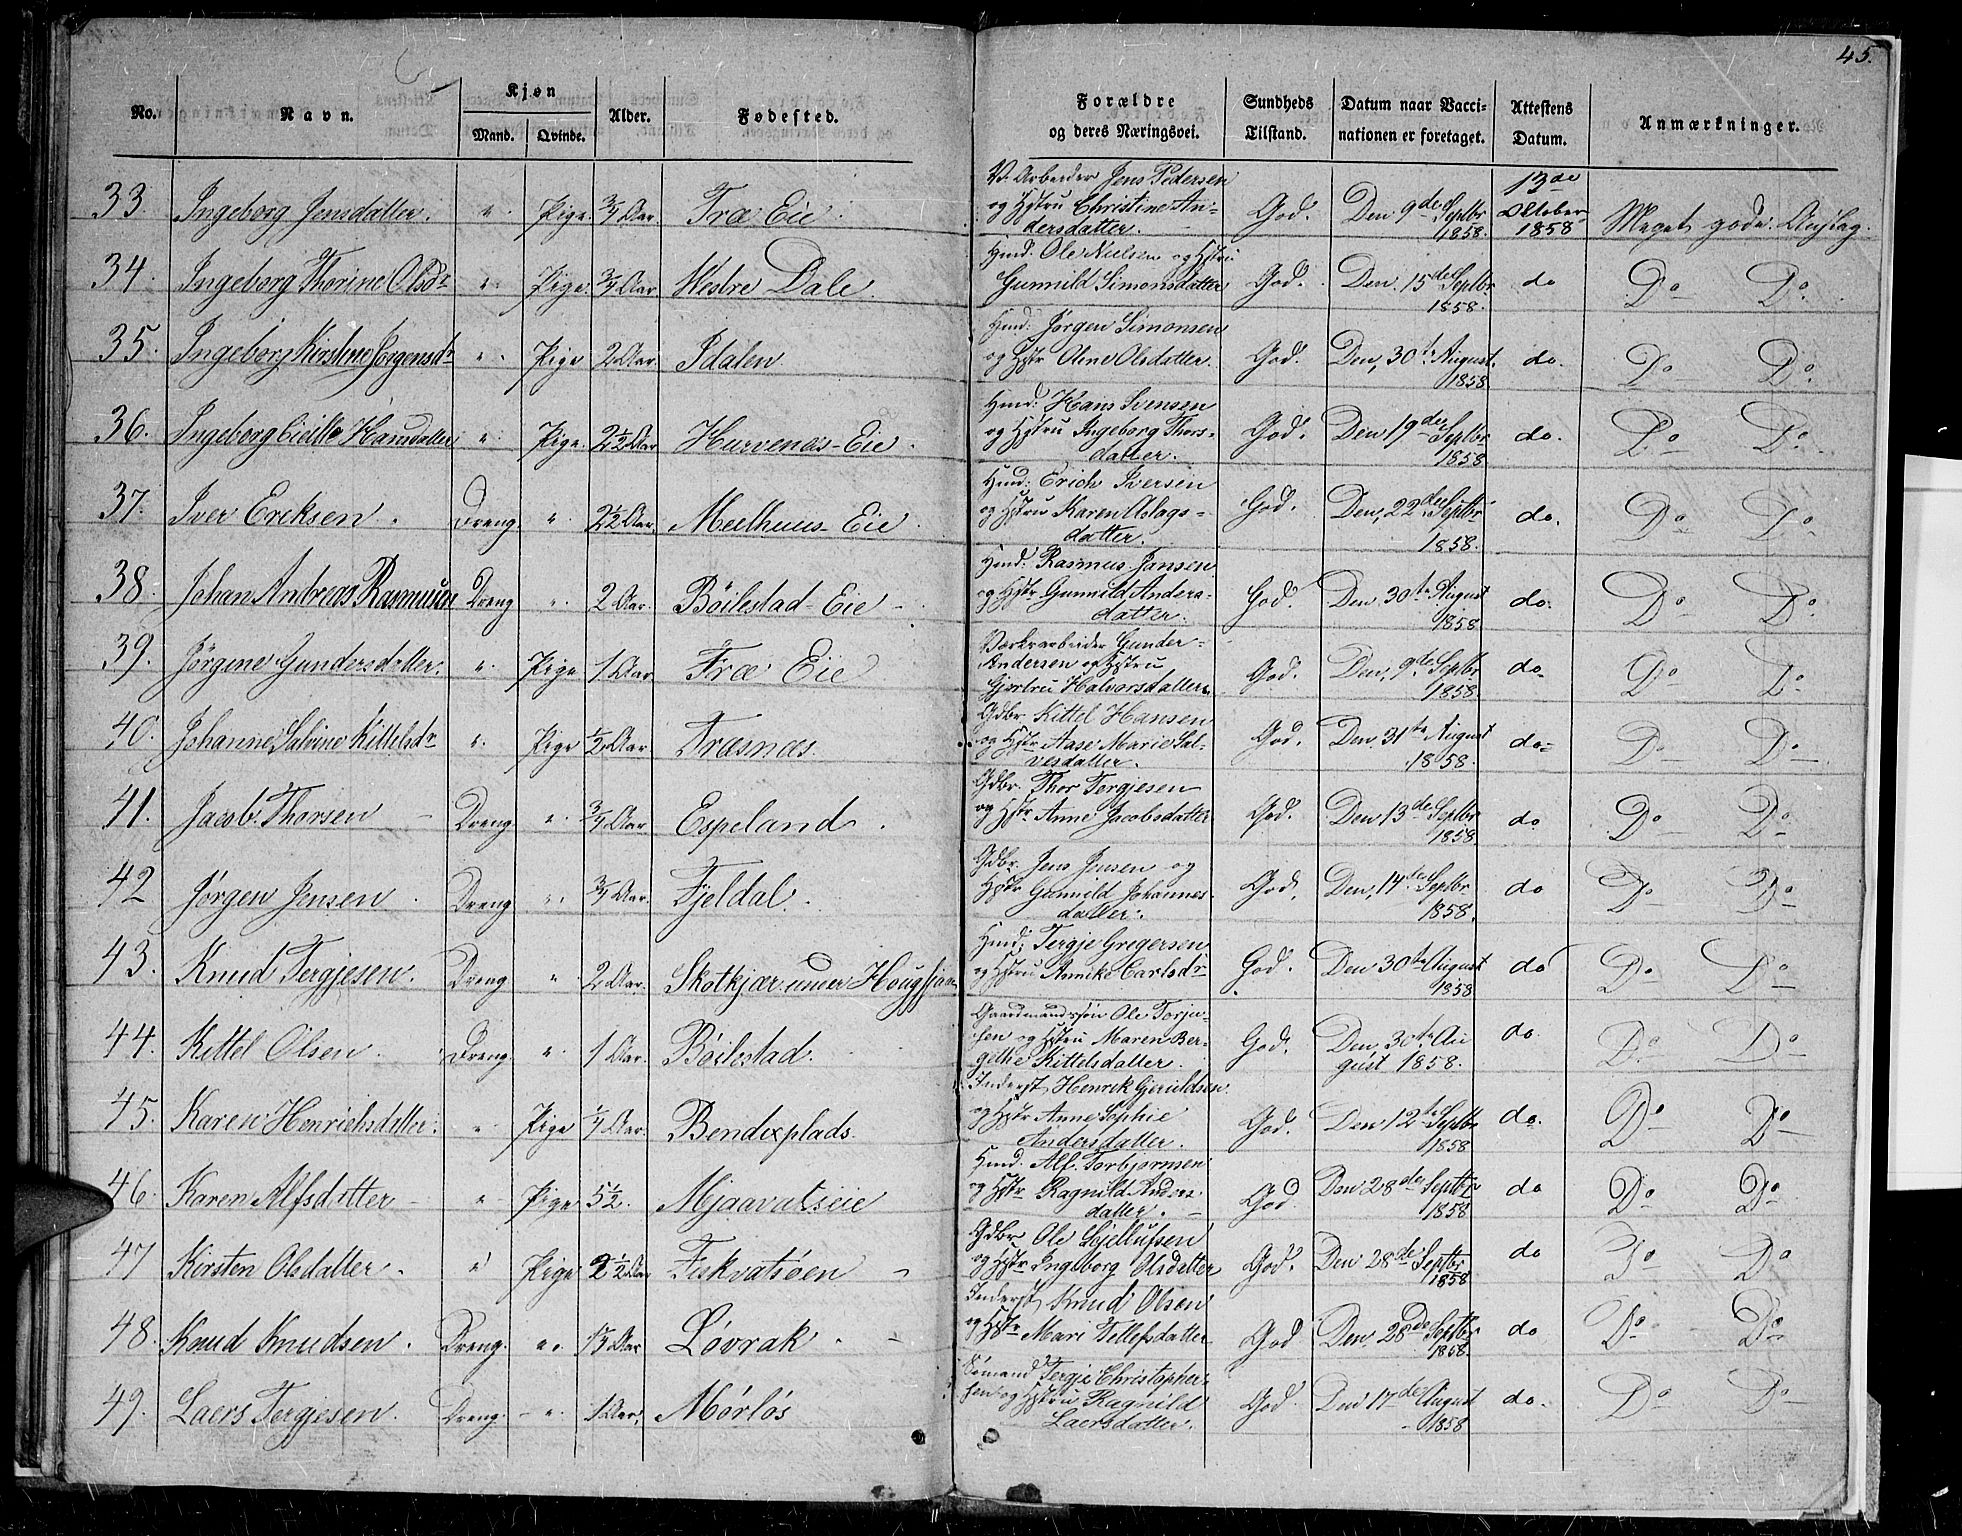 45.
No. Navn. Kjøn Mand. Qvinde. Alder. Fødested. Forældre og deres Næringsvei. Sundheds Tilstand. Datum naar Vaccinationen er foretaget. Attestens Datum. Anmærkninger.
33. Ingeborg Jensdatter. " Pige. 3/4 Aar. Træ Eie. V. Arbeider Jens Pedersen
og Hstru Christine An=
dersdatter. God. Den 9de Septbr 1858. 13de Oktober 1858 Meget gode Anslag.
34 Ingeborg Thorine Olsdr " Pige. 3/4 Aar Westre Dale. Hmd. Ole Nielsen og Hstru
Gunnild Simonsdatter God. Den 15de Septbr 1858. do Do Do
35. Ingeborg Kirstine Jørgensdr " Pige 2 Aar Idalen Hmd: Jørgen Simonsen
og Hstr Oline Olsdatter. God. Den 30te August. 1858. do. Do Do
36. Ingeborg Hansdatter " Pige 2½ Aar Hurvenæs-Eie. Hmd: Hans Svensen
og Hstru Ingeborg Thors-
datter. God. Den 19de Septbr 1858 do. Do Do
37. Iver Eriksen. Dreng. " 2½ Aar. Meelhuus-Eie Hmd: Erich Iversen
og Hstru Karen Aslags=
datter. God. Den 22de Septbr 1858. do. Do Do
38. Johan Andreas Rasmusen Dreng " 2 Aar. Böilestad-Eie - Hmd: Rasmus Jansen
og Hstr Gunnild Anders-
datter. God. Den 30te August 1858. do. Do Do
39. Jørgine Gundersdatter. " Pige 1 Aar Træ Eie Værksarbeider Gunder=
Andersen og Hstru
Gjertru Halvorsdatter. God. Den 9de Septbr 1858. do Do Do
40. Johanne Salvine Kittelsdr " Pige ½ Aar Træsnæs. Gdbr. Kittel Hansen
og Hstr Aase Marie Sal-
vesdatter. God. Den 31te August 1858. do= Do Do
41. Jacob Thorsen - Dreng " 3/4 Aar Espeland. Gdbr. Thor Tergjesen
og Hstr Anne Jacobsdatter God. Den 13de Septbr 1858. do Do Do
42 Jørgen Jensen. Dreng " 3/4 Aar Fjeldal. Gdbr. Jens Jensen og
Hstr Gunnild Johannes-
datter. God. Den 14de Septbr 1858. do Do Do
43. Knud Tergjesen. Dreng " 2 Aar. Skotkjær under Hmd: Tergje Gregersen
og Hstru Annike Carlsdr God. Den 30te August 1858 do Do Do
44. Kittel Olsen. Dreng. " 1 Aar. Böilestad. Gaardmandssøn Ole Torju-
sen og Hstru Maren Ber-
gethe Kittelsdatter. God. Den 30te Au
gust 1858. do. Do Do
45. Karen Henrichsdatter. " Pige ¼ Aar. Bendixplads. Inderst Henrik
og Hstr Anne Sophie
Andersdatter. God. Den 12te Septbr 1858 do. Do Do
46. Karen Alfsdatter - " Pige 5½. Mjaavatseie Hmd. Alf Torbjørnsen
og Hstr Ragnild Anders-
datter. - God Den 28de Septbr 1858 do Do Do
47 Kirsten Olsdatter. " Pige 2½ Aar - Gdbr Ole
og Hstr Ingeborg Olsdatter God. Den 28de Septbr 1858 do Do Do
48. Knud Knudsen. Dreng. " Aar Løvrak. - Inderst Knud Olsen
og Hstr Mari Tellefsdatter God Den 28de Septbr 1858. do Do Do
49. Laers Tergjesen. Dreng. - " 1 Aar. Mørløs Sømand Tergje Christopher-
sen og Hstru Ragnild
Laersdatter. God. Den 17de August 1858 do. Do Do